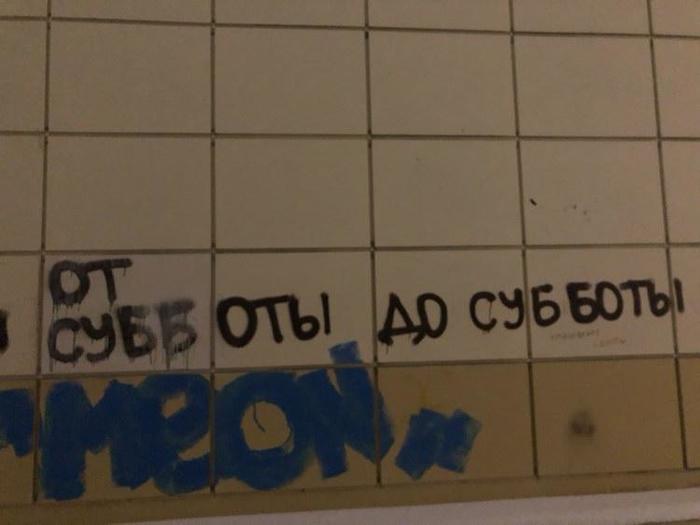 ОТ
СУББОТЫ ДО СУББОТЫ
MEON